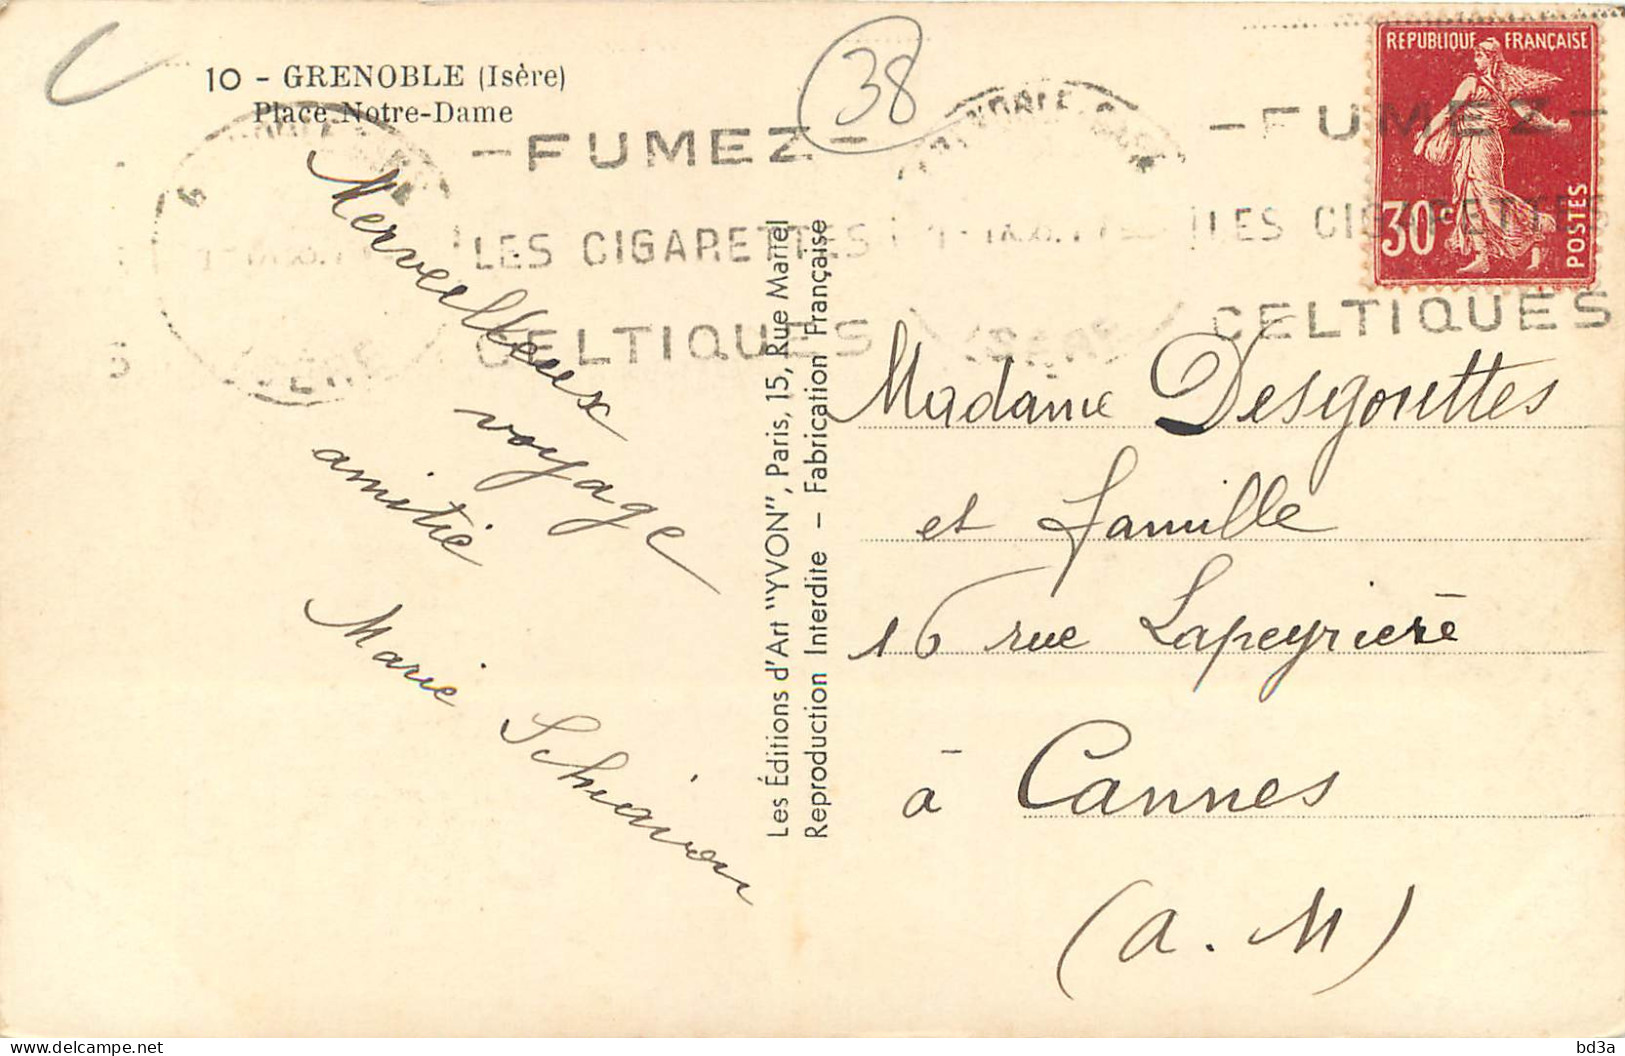 10 - GRENOBLE (Isère)
Place Notre-Dame
38
- FUMEZ -
LES CIGARETTES
CELTIQUES
ISÈRE
- FUMEZ -
LES CIGARETTES
CELTIQUES
ISÈRE
REPUBLIQUE FRANÇAISE
30c
POSTES
Merveilleux
voyage
amitié
Marie Schiavon
Les Éditions d'Art "YVON", Paris, 15, Rue Martel
Reproduction Interdite — Fabrication Française
Madame Desgouttes
et famille
16 rue Lapeyrière
à Cannes
(A. M)
bd3a